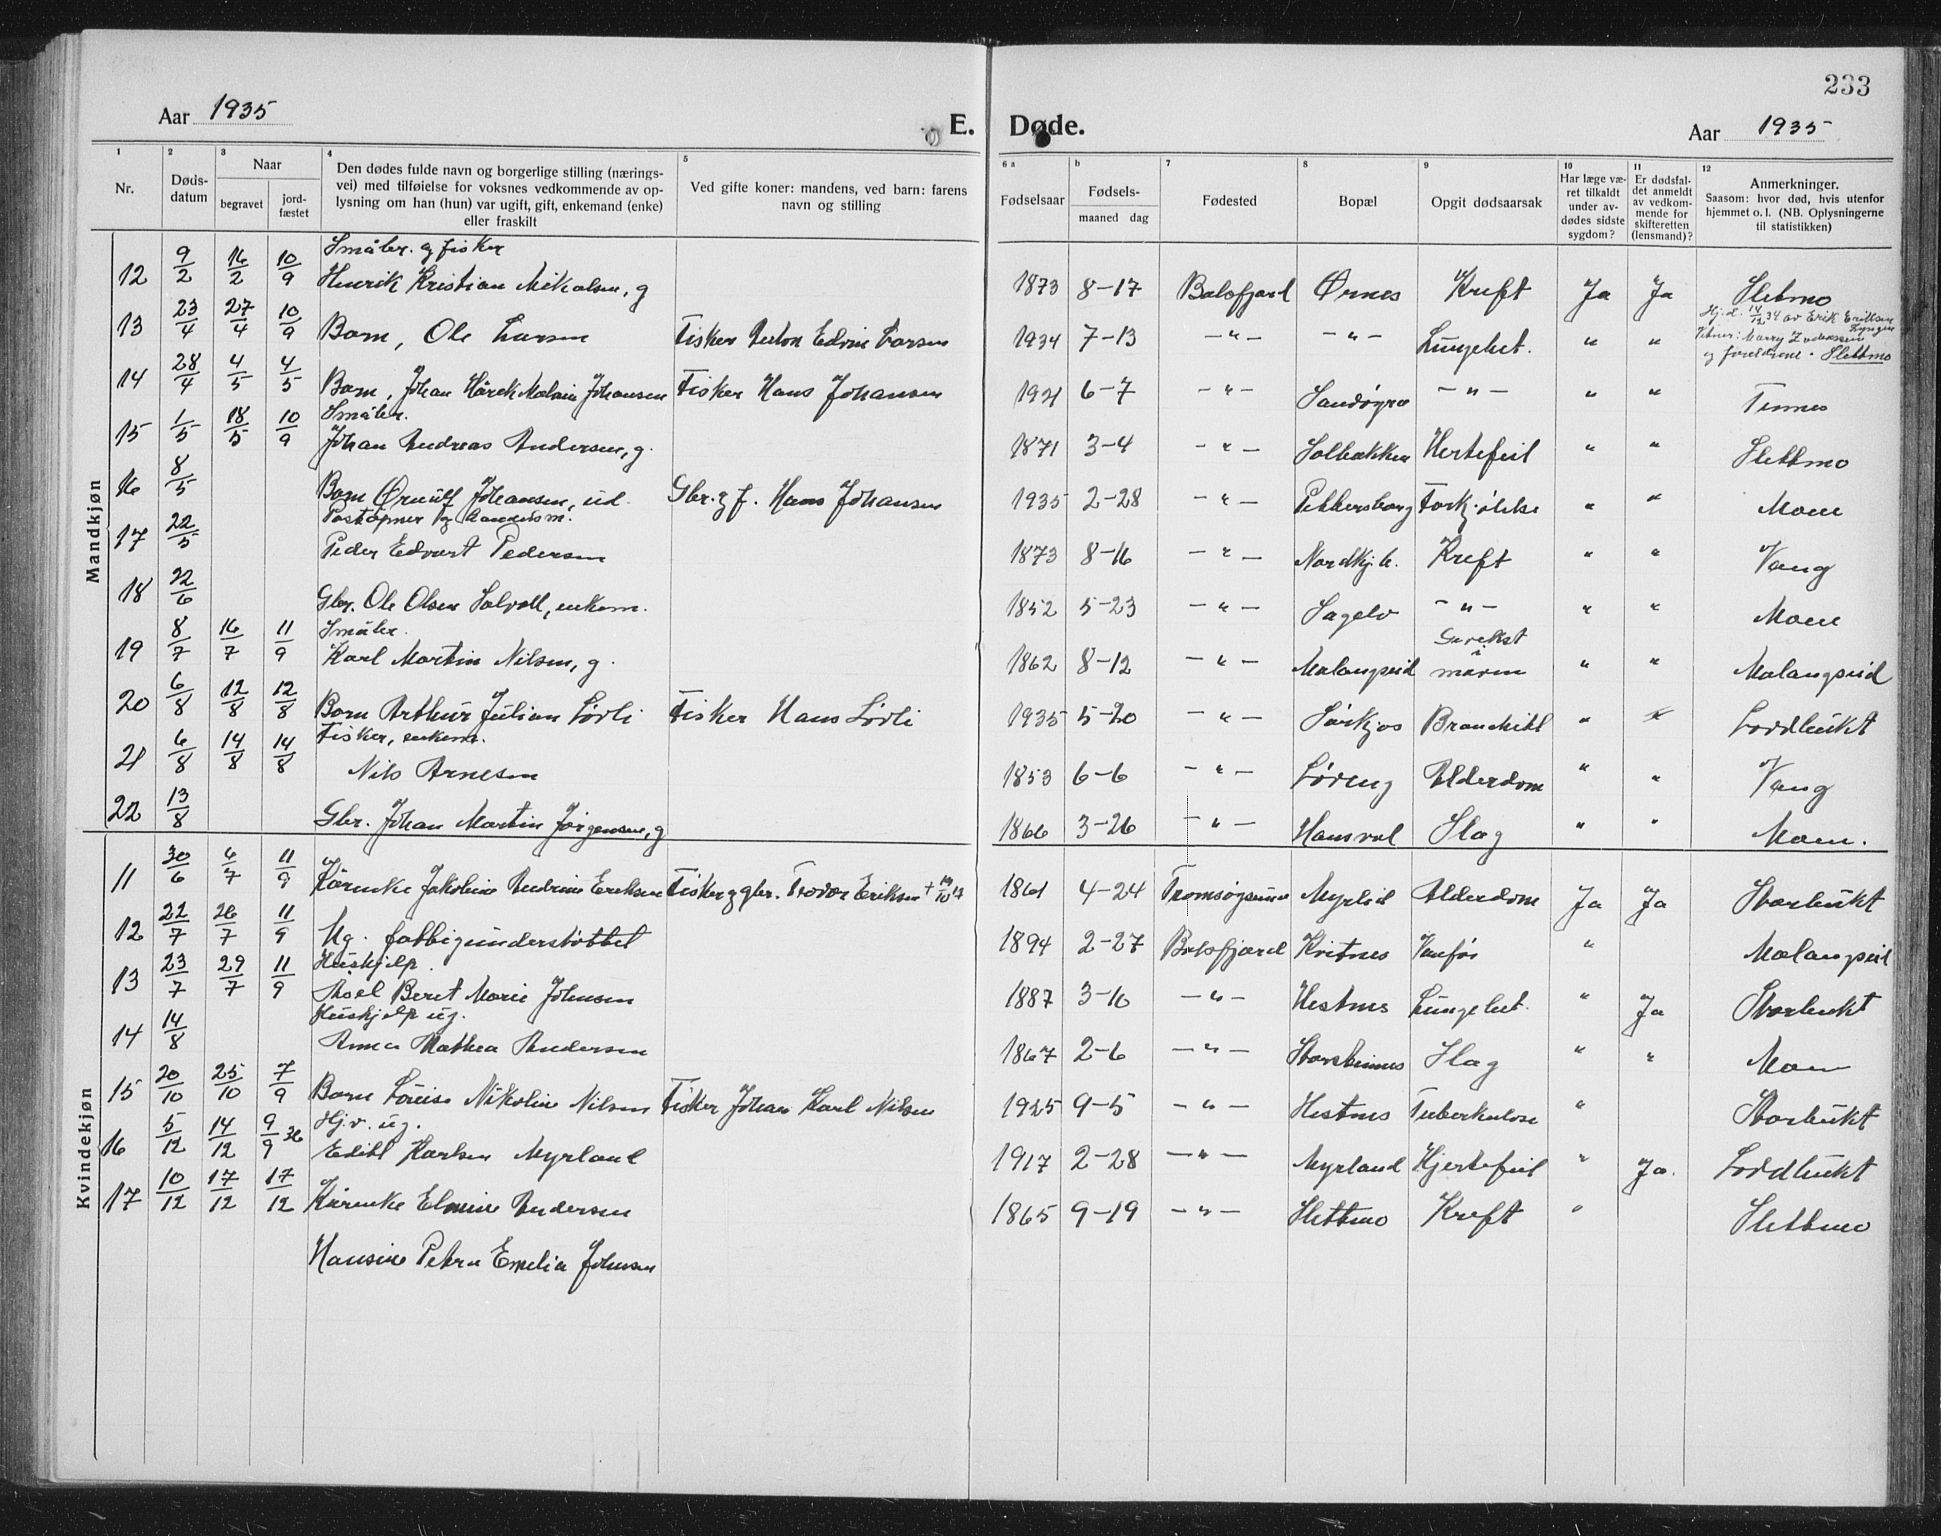 233
Aar 1935 E. Døde. Aar 1935
1 2 3 4 5 6 a b 7 8 9 10 11 12
Nr.
Døds-
datum
Naar
begravet
jord-
fæstet
Den dødes fulde navn og borgerlige stilling (nærings-
vei) med tilføielse for voksnes vedkommende av op-
lysning om han (hun) var ugift, gift, enkemand (enke)
eller fraskilt
Ved gifte koner: mandens, ved barn: farens
navn og stilling
Fødselsaar
Fødsels-
maaned dag
Fødested
Bopæl
Opgit dødsaarsak
Har læge væ-
ret tilkaldt
under av-
dødes sidste
sygdom?
Er dødsfal-
det anmeldt
av vedkom-
mende for
skifteretten
(lensmand)?
Anmerkninger.
Saasom: hvor død, hvis utenfor
hjemmet o. l. (NB. Oplysningerne
til statistikken)
Mandkjøn
Småbr. og fisker
12 9/2 16/2 10/9 Henrik Kristian Mikalsen, g 1873 8-17 Balsfjord Ørnes Kreft Ja Ja Slettmo
Hj.d. 14/12 34 av Erik Eriksen
Lyngen
13 23/4 27/4 10/9 Barn, Ole Larsen Fisker Anton Edvin Larsen 1934 7-13 -"- -"- Lungebet. " "
og foreldrene. Slettmo
14 28/4 4/5 4/5 Barn, Johan Hårek Johansen Fisker Hans Johansen 1921 6-7 -"- Sandøyra -"- " " Tennes
Småbr.
15 1/5 18/5 10/9 Johan Andreas Andersen, g. 1871 3-4 -"- Solbakken Hertefeil " " Slettmo
16 8/5 Barn Ørnulf Johansen, ud. Gbr. g f. Hans Johansen 1935 2-28 -"- Pikkersborg Forkjølelse " " Moen
Poståpner og handelsm.
17 22/5 Peder Edvart Pedersen 1873 8-16 -"- Nordkj.b. Kreft " " Vang
18 22/6 Gbr. Ole Olsen Solvoll, enkem. 1852 5-23 -"- Sagelv -"- " " Moen
Småbr.
19 8/7 16/7 11/9 Karl Martin Nilsen, g. 1862 8-12 -"- Malangseid Svækst i maven " " Malangseid
20 6/8 12/8 12/8 Barn Arthur Julian Lødli Fisker Hans Lødli 1935 5-20 -"- Sørkjos Bronchitt " " Lodbukt
Fisker, enkem.
21 6/8 14/8 14/8 Nils Arnesen 1853 6-6 -"- Løveng Alderdom " " Vang
22 13/8 Gbr. Johan Martin Jørgensen, g 1866 3-26 -"- Hamsvol Slag " " Moen.
Kvindekjøn
11 30/6 6/7 11/9 Kårenke Jakobine Andrine Eriksen Fisker g gbr. Teodor Eriksen + 1861 4-24 Tromsøysund Myrlid Alderdom Ja Ja Storbukt
12 22/7 26/7 11/9 Ug. fattigunderstøttet 1894 2-27 Balsfjord Kvitnes Vanfør " Malangseid
Huskjelp.
13 23/7 29/7 11/9 Asel Beret Marie Johnsen 1887 3-10 -"- Hestnes Lungebet. " Ja Storbukt
Huskjelp ug.
14 14/8 Anna Mathea Andersen 1867 2-6 -"- Storsteinnes Slag " " Moen
15 20/10 25/10 7/9 Barn Lovise Nikoline Nilsen Fisker Johan Karl Nilsen 1925 9-5 -"- Hestnes Tuberkulose " Storbukt
Hj.v. ug.
16 5/12 14/12 9/9 36 Edith Karlsen Myrland 1917 2-28 -"- Myrland Hjertefeil " Ja. Lodbukt
17 10/12 17/12 17/12 Kårenke Elmine Andersen 1865 9-19 -"- Slettmo Kreft " Slettmo
Hansine Petra Emelia Johnsen